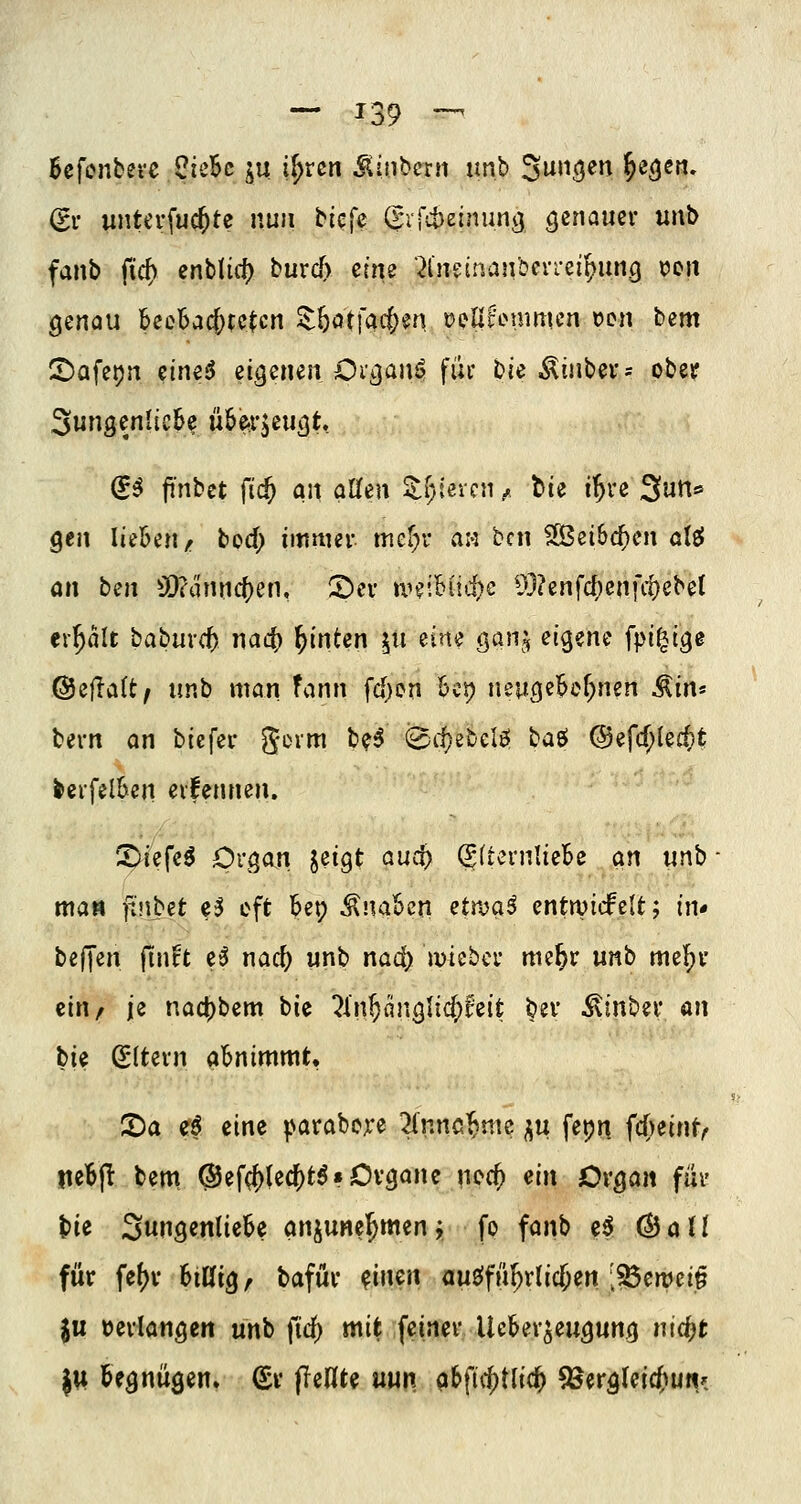 — 139 —
besondere Liebe zu ihren Kindern und Jungen hegen.
Er untersuchte nun diese Erscheinung genauer und
fand sich endlich durch eine Aneinanderreihung von
genau beobachteten Thatsachen vollkommen von dem
Daseyn eines eigenen Organs für die Kinder- oder
Jungenliebe überzeugt.
Es findet sich an allen Thieren, die ihre Jun-
gen lieben, doch immer mehr an den Weibchen als
an den Männchen. Der weibliche Menschenschedel
erhält dadurch nach hinten zu eine ganz eigene spitzige
Gestalt, und man kann schon bey neugebohnen Kin-
dern an dieser Form des Schedels das Geschlecht
derselben erkennen.
Dieses Organ zeigt auch Elternliebe an und
man findet es oft bey Knaben etwas entwickelt; in-
dessen sinkt es nach und nach wieder mehr und mehr
ein, je nachdem die Anhänglichkeit der Kinder an
die Eltern abnimmt.
Da es eine paradoxe Annahme zu seyn scheint,
nebst dem Geschlechts-Organe noch ein Organ für
die Jungenliebe anzunehmen; so fand es Gall
für sehr billig, dafür einen ausführlichen Beweiß
zu verlangen und sich mit seiner Ueberzeugung nicht
zu begnügen. Er stellte uun absichtlich Vergleichun-